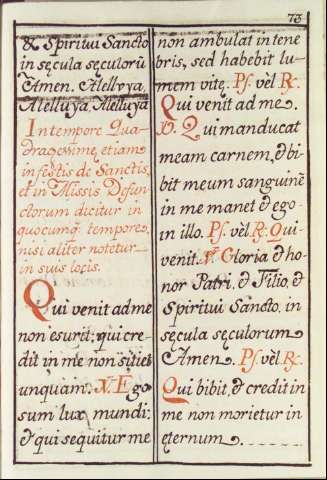 73
& Spiritui Sancto
in sęcula sęculorũ
Amen. Alelluya,
Alelluya, Alelluya
In tempore Qua-
dragessimę, etiam
in festis de Sanctis,
et in Missis Defun
ctorum dicitur in
quocumq; tempore,
nisi aliter notetur
in suis locis.
Qui venit ad me
non esurit; qui cre-
dit in me non sitiet
unquam. ℣. Ego
sum lux mundi:
& qui sequitur me
non ambulat in tene
bris, sed habebit lu-
mem vitę. Ps. vèl ℟.
Qui venit ad me.
℣. Qui manducat
meam carnem, & bi-
bit meum sanguinẽ
in me manet & ego
in illo. Ps. vèl ℟. Qui
venit. ℣. Gloria & ho
nor Patri, & Filio, &
Spiritui Sancto, in
sęcula sęculorum
Amen. Ps. vèl ℟.
Qui bibit, & credit in
me non morietur in
ęternum.